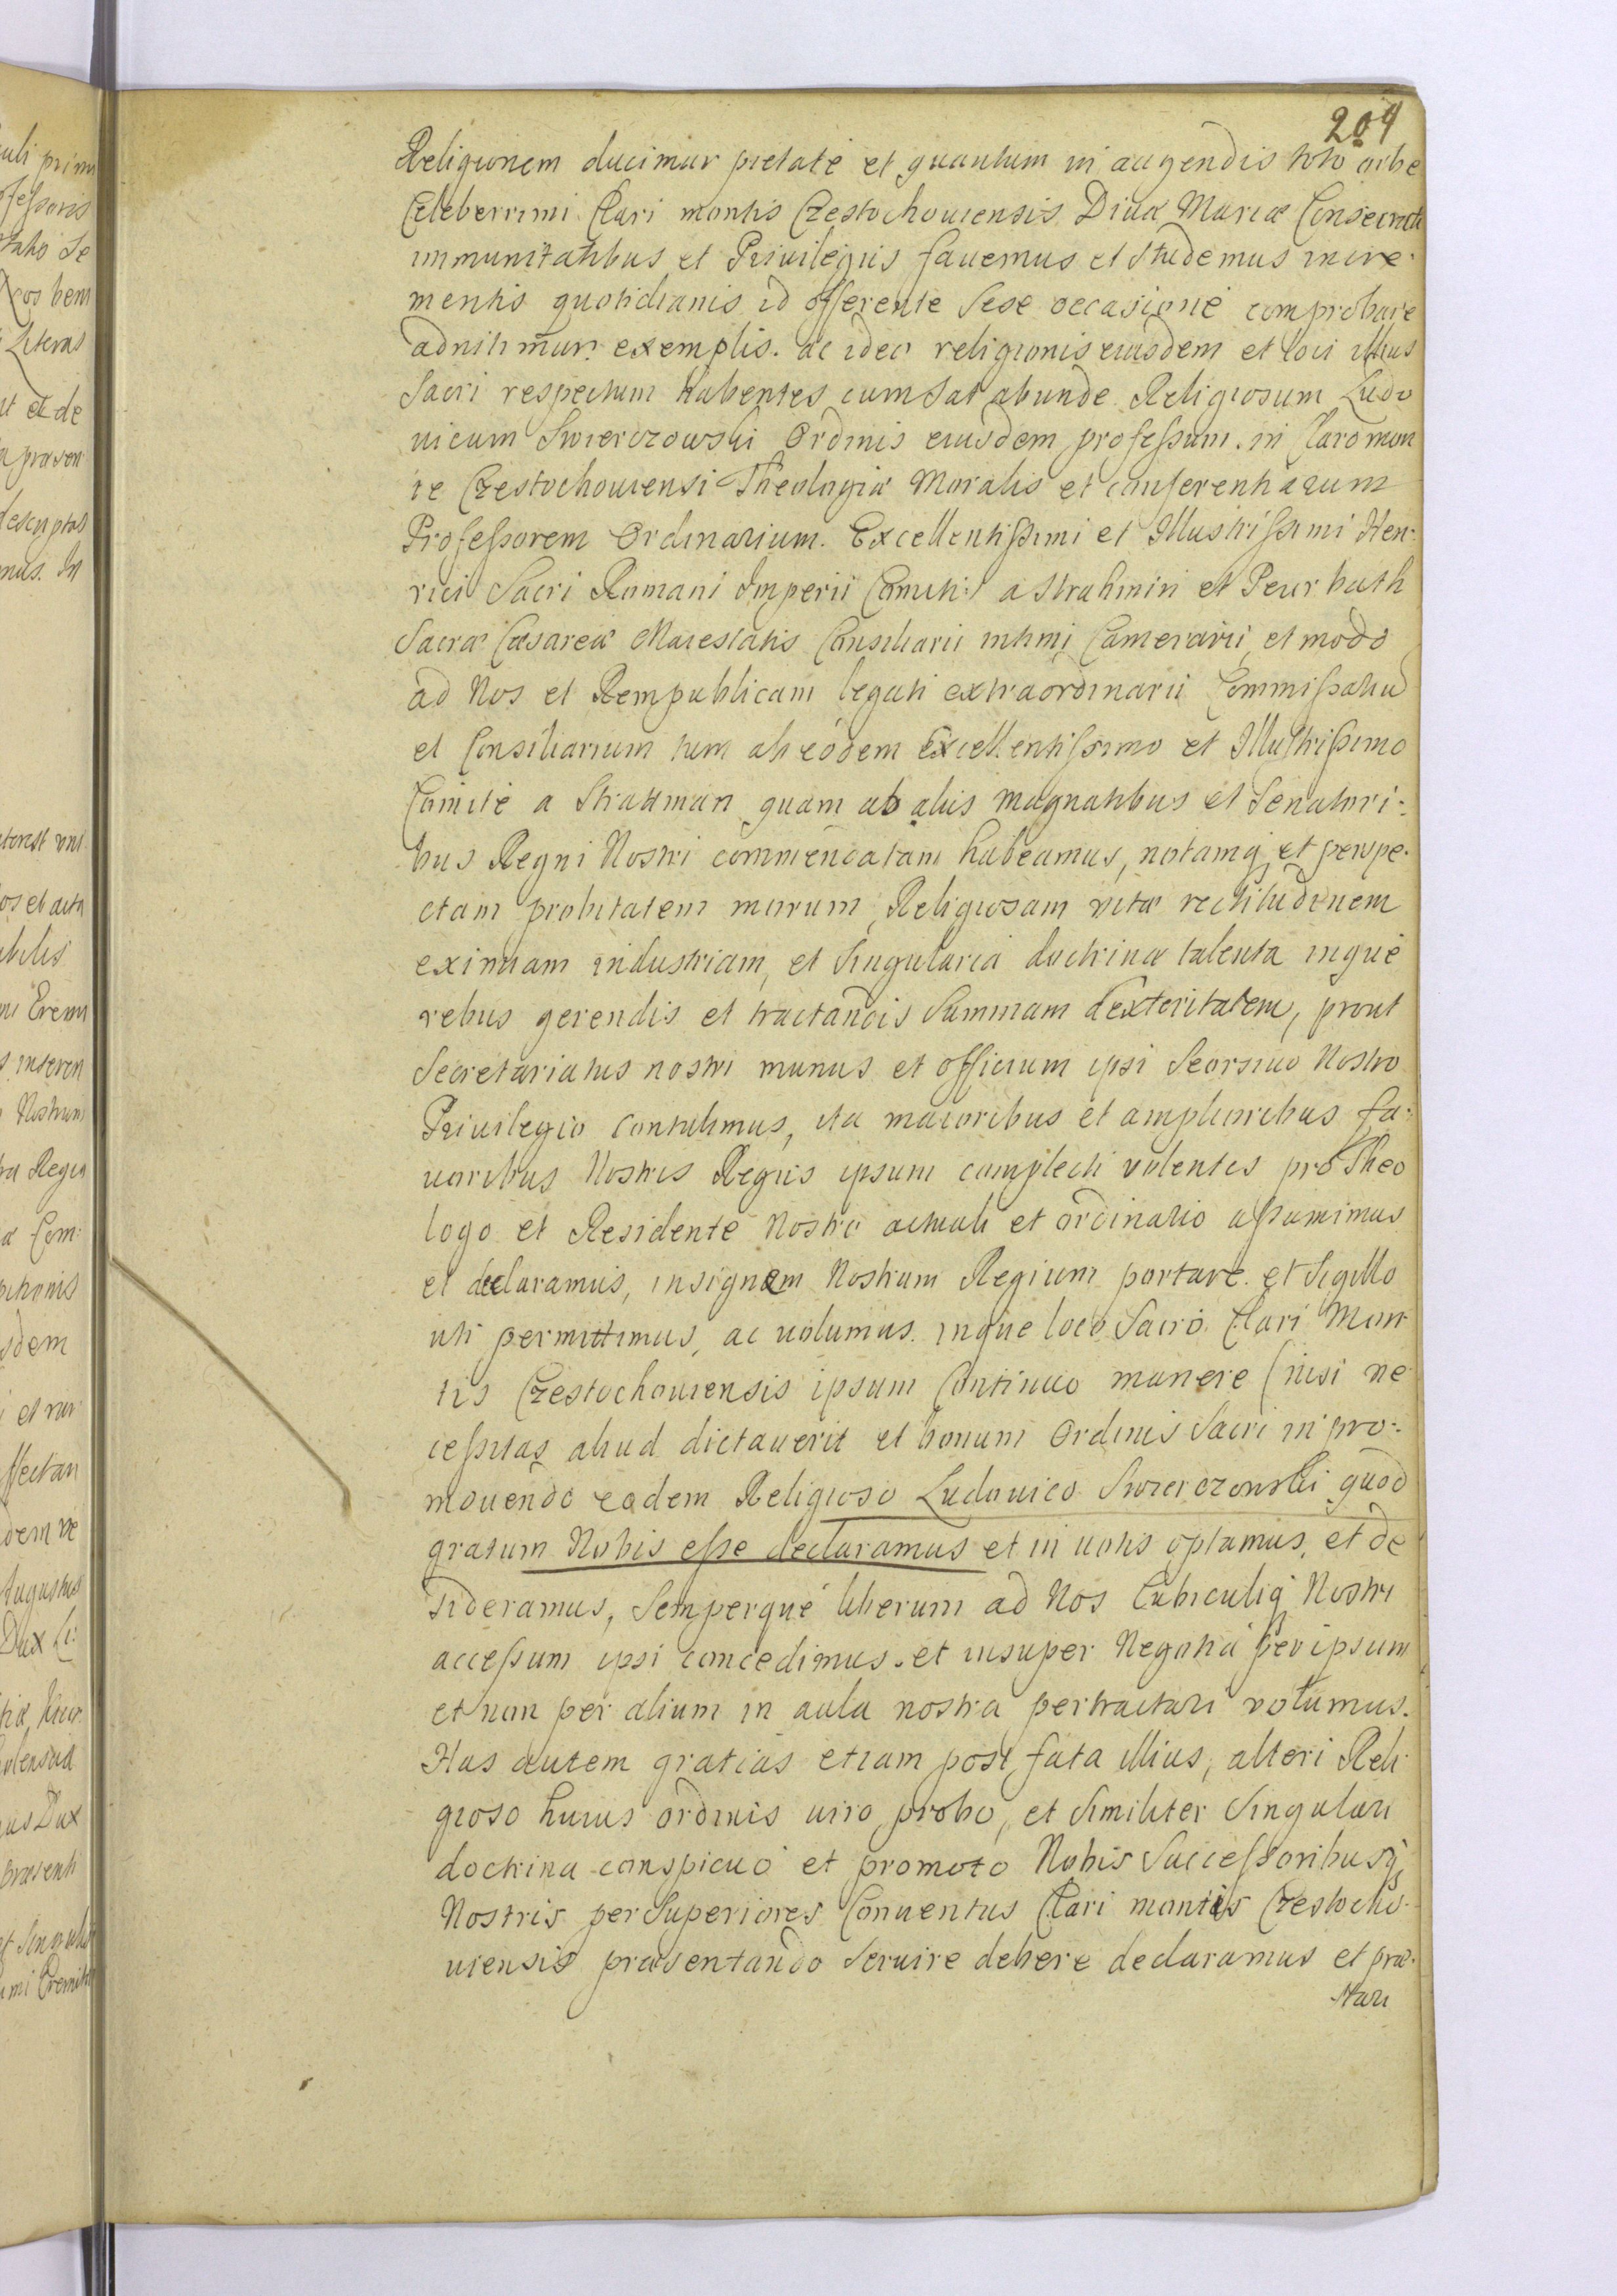 204
Religionem ducimur pietate et quantum in augendis toto orbe
Celeberrimi Clari montis Czestochouiensis Diuæ Mariæ Consecrati
immunitatibus et Priuilegiis fauemus et studemus incre-
mentis quotidianis id offerente sese occasione comprobare
adnitimur exemplis. ac ideo religionis eiusdem et loci illius
Sacri respectum habentes cum sat abunde Religiosum Ludo
uicum Swierczowski Ordinis eiusdem professum. in Claro mon
te Czestochouiensi Theologiæ Moralis et conferentiarum
Professorem Ordinarium. Excellentissimi et Illustrissimi Hen-
rici Sacri Romani Imperii Comitis a Strahmin et Peur bath
Sacræ Cæsareæ Maiestatis Consiliarii intimi Camerarii, et modo
ad Nos et Rempublicam legati extraordinarii Commissariu
et Consiliarium tum ab eodem Excellentissimo et Illustrissimo
Comite a Strattman quam ab aliis magnatibus et Senatori-
bus Regni Nostri commendatam habeamus, notamq et perspe-
ctam probitatem morum, Religiosam vitæ rectitudinem
eximiam industriam, et singularia doctrinæ talenta inque
rebus gerendis et tractandis summam dexteritatem, prout
Secretariatus nostri munus et officium ipsi Seorsiuo Nostro
Priuilegio contulimus, ita maioribus et amplioribus fa-
uoribus Nostris Regiis ipsum complecti volentes pro Theo
logo et Residente Nostro actuali et ordinario assumimus
et declaramus, insignem Nostrum Regium portare et Sigillo
uti permittimus, ac uolumus. inque loco Sacro Clari Mon
tis Czestochouiensis ipsum Continuo manere (nisi ne
cessitas aliud dictauerit et bonum Ordinis Sacri in pro-
mouendo eodem Religioso Ludouico Swierczowski quod
gratum Nobis esse declaramus et in uotis optamus, et de
sideramus, Semperque liberum ad Nos Cubiculiq Nostri
accessum ipsi concedimus. et insuper Negotia per ipsum
et non per alium in aula nostra pertractari volumus.
Has autem gratias etiam post fata illius, alteri Reli
gioso huius ordinis uiro probo, et similiter Singulari
doctrina conspicuo et promoto Nobis Successoribusq
Nostris per Superiores Conuentus Clari montis Czestocho-
uiensis præsentando seruire debere declaramus et præ-
stari